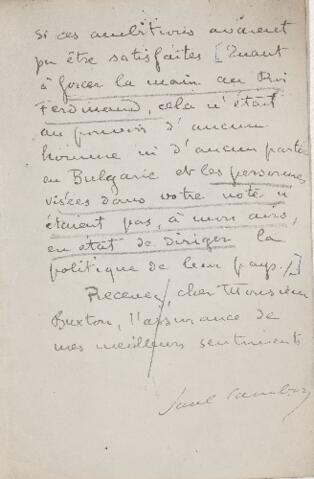 si ces ambitions avaient
pu être satisfaites [Quant
à forcer la main au Roi
Ferdinand, cela n'était
au pouvoir d'aucun
homme ni d'aucun parti
en Bulgarie et les personnes
visées dans votre note n'
étaient pas, à mon avis,
en état de diriger la
politique de leur pays.]
Recevez, cher Monsieur
Buxton, l'assurance de
mes meilleurs sentiments
Paul Cambon